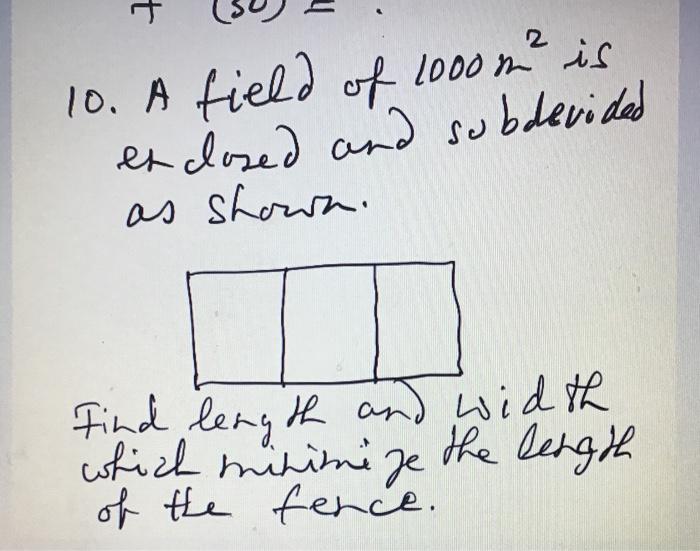 + (50) = .
10. A field of 1000 m² is
enclosed and subdevided
as shown.
Find length and width
which minimize the length
of the fence.